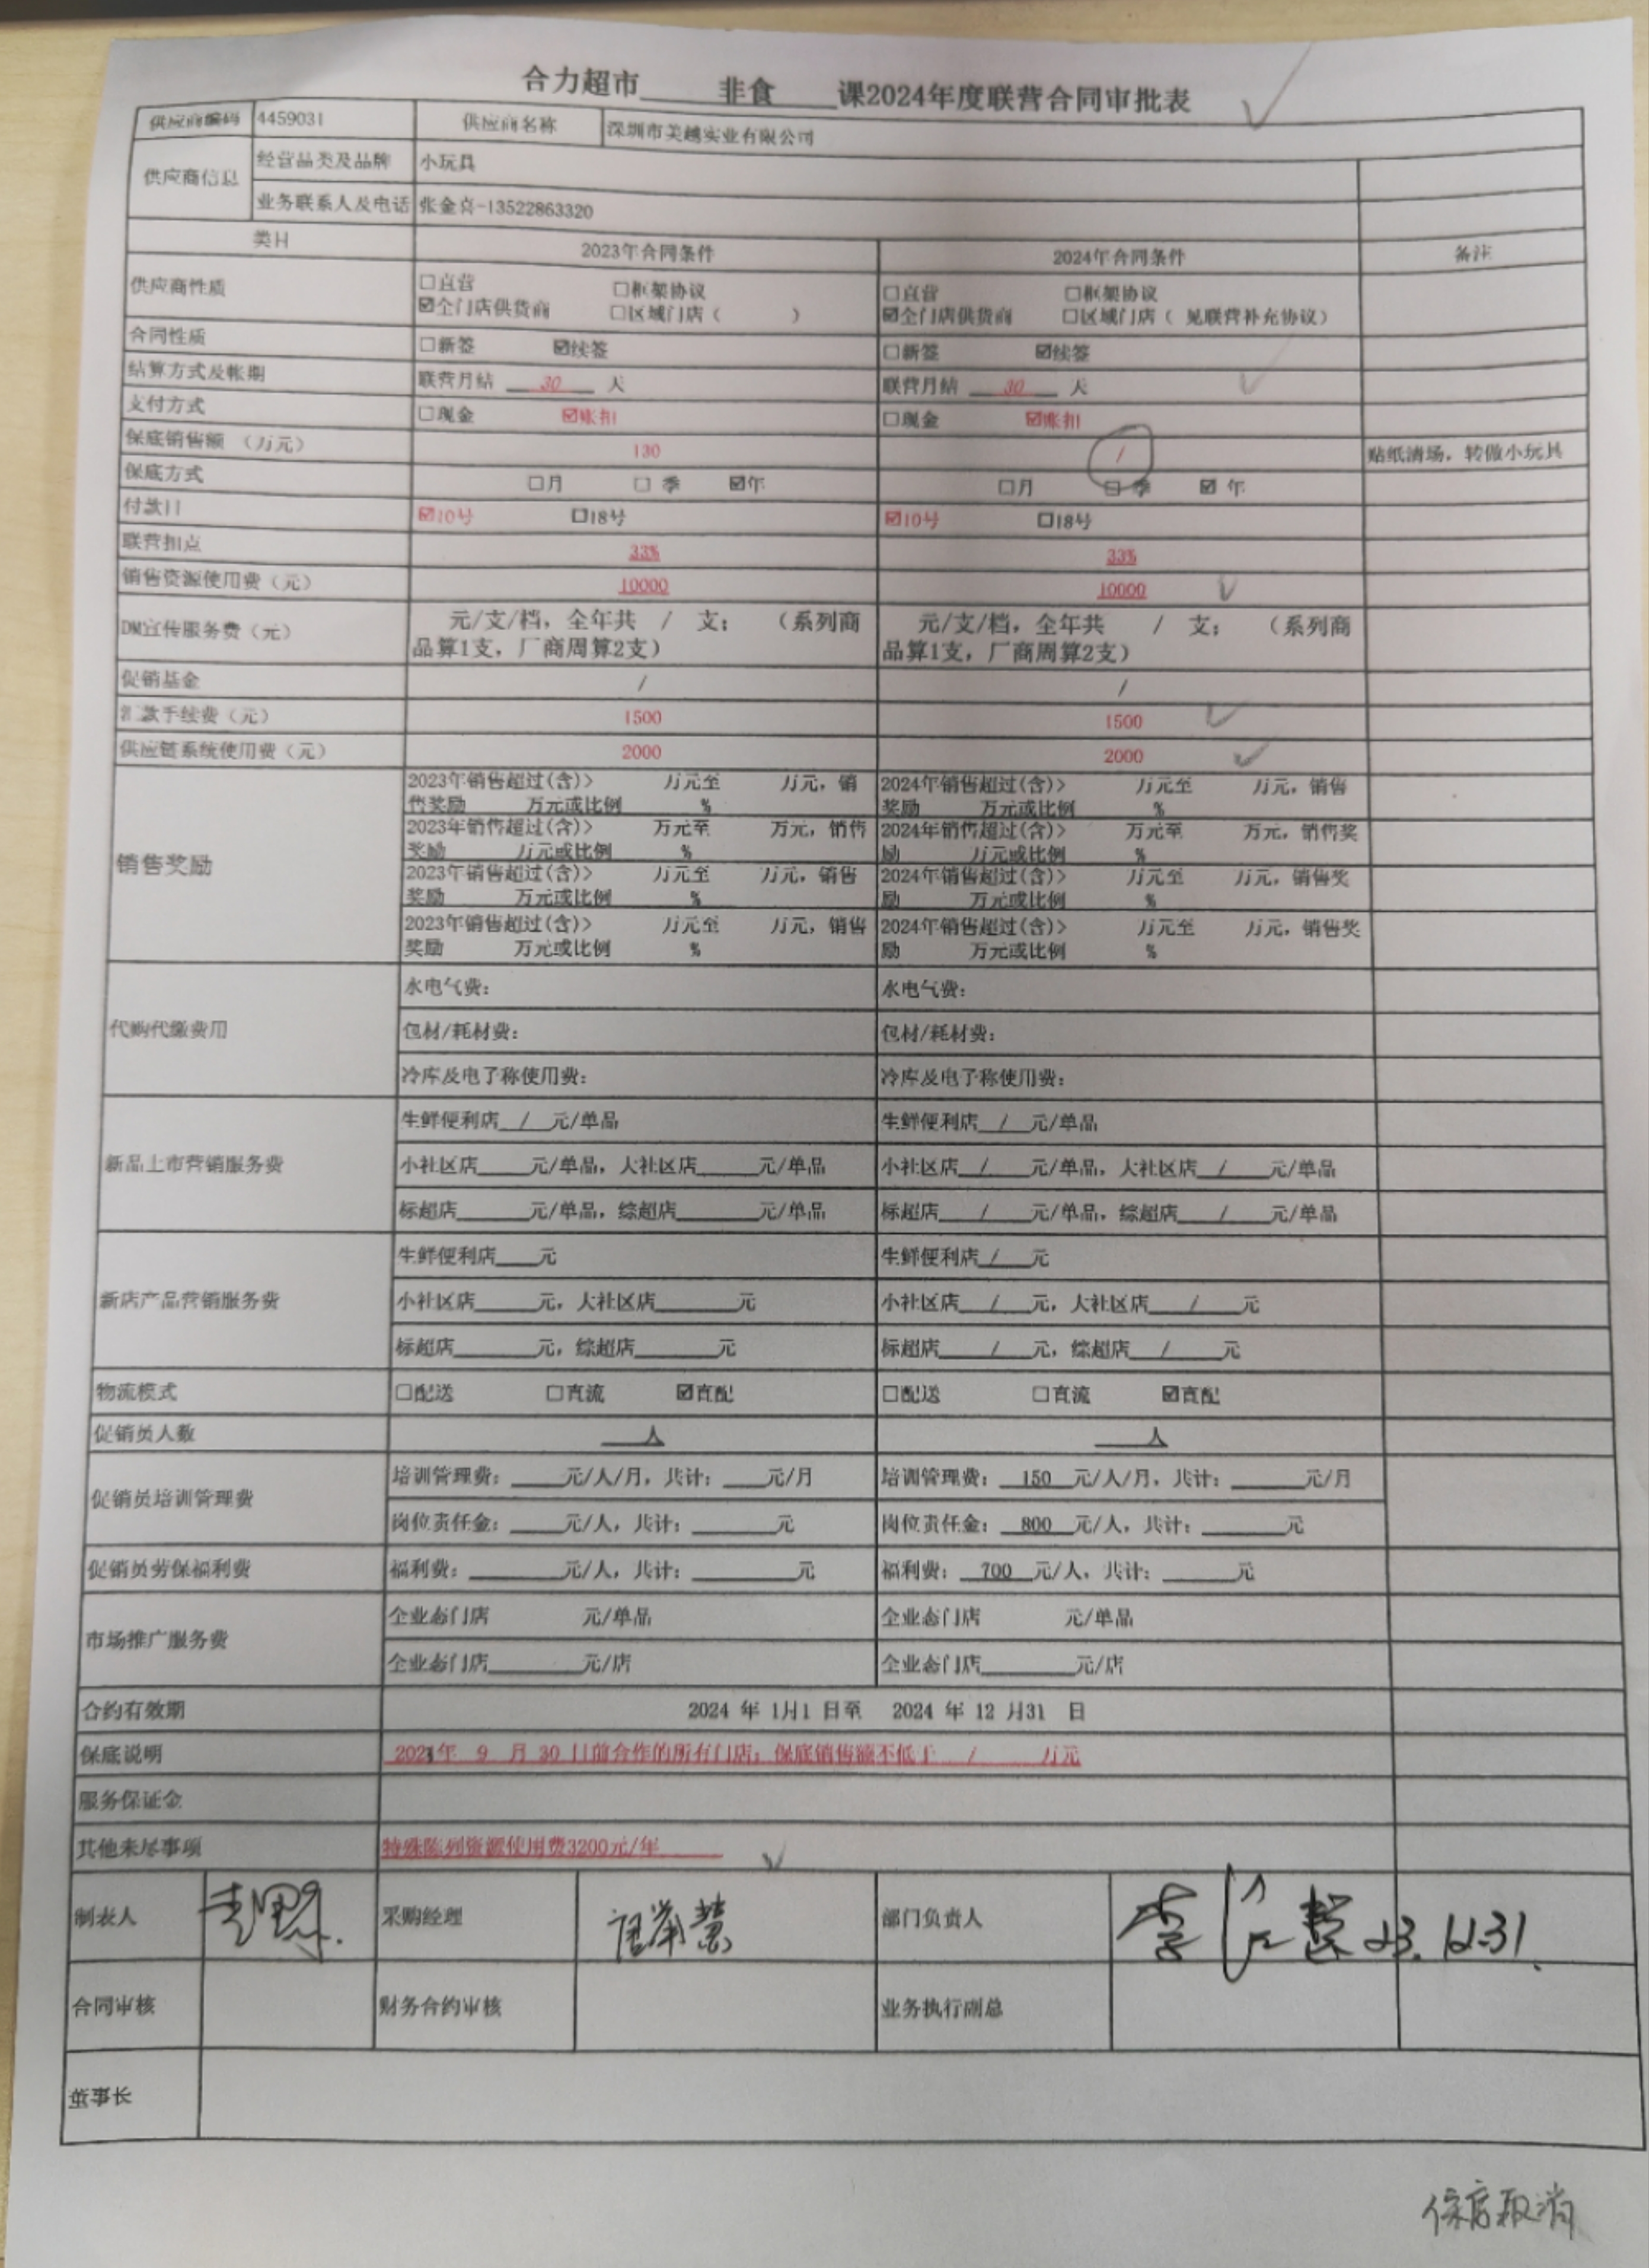 合力超市 非食 课2024年度联营合同审批表
供应商编码 4459031 供应商名称 深圳市美越实业有限公司
供应商信息 经营品类及品牌 小玩具
业务联系人及电话 张金喜-13522863320
类目 2023年合同条件 2024年合同条件 备注
供应商性质 □直营 □框架协议 □直营 □框架协议
☑全门店供货商 □区域门店（ ） ☑全门店供货商 □区域门店（ 见联营补充协议）
合同性质 □新签 ☑续签 □新签 ☑续签
结算方式及帐期 联营月结 30 天 联营月结 30 天
支付方式 □现金 ☑账扣 □现金 ☑账扣
保底销售额 （万元） 130 / 贴纸清场，转做小玩具
保底方式 □月 □ 季 ☑年 □月 □ 季 ☑ 年
付款日 ☑10号 □18号 ☑10号 □18号
联营扣点 33% 33%
销售资源使用费（元） 10000 10000
DM宣传服务费（元） 元/支/档，全年共 / 支； （系列商 元/支/档，全年共 / 支； （系列商
品算1支，厂商周算2支） 品算1支，厂商周算2支）
促销基金 / /
汇款手续费（元） 1500 1500
供应链系统使用费（元） 2000 2000
销售奖励 2023年销售超过(含)> 万元至 万元，销 2024年销售超过(含)> 万元至 万元，销售
售奖励 万元或比例 % 奖励 万元或比例 %
2023年销售超过(含)> 万元至 万元，销售 2024年销售超过(含)> 万元至 万元，销售奖
奖励 万元或比例 % 励 万元或比例 %
2023年销售超过(含)> 万元至 万元，销售 2024年销售超过(含)> 万元至 万元，销售奖
奖励 万元或比例 % 励 万元或比例 %
2023年销售超过(含)> 万元至 万元，销售 2024年销售超过(含)> 万元至 万元，销售奖
奖励 万元或比例 % 励 万元或比例 %
代购代缴费用 水电气费： 水电气费：
包材/耗材费： 包材/耗材费：
冷库及电子称使用费： 冷库及电子称使用费：
新品上市营销服务费 生鲜便利店 / 元/单品 生鲜便利店 / 元/单品
小社区店____元/单品，大社区店____元/单品 小社区店 / 元/单品，大社区店 / 元/单品
标超店____元/单品，综超店____元/单品 标超店 / 元/单品，综超店 / 元/单品
新店产品营销服务费 生鲜便利店____元 生鲜便利店 / 元
小社区店____元，大社区店____元 小社区店 / 元，大社区店 / 元
标超店____元，综超店____元 标超店 / 元，综超店 / 元
物流模式 □配送 □直流 ☑直配 □配送 □直流 ☑直配
促销员人数 ____人 ____人
促销员培训管理费 培训管理费：____元/人/月，共计：____元/月 培训管理费： 150 元/人/月，共计：____元/月
岗位责任金：____元/人，共计：____元 岗位责任金： 800 元/人，共计：____元
促销员劳保福利费 福利费：____元/人，共计：____元 福利费： 700 元/人，共计：____元
市场推广服务费 企业态门店 元/单品 企业态门店 元/单品
企业态门店____元/店 企业态门店____元/店
合约有效期 2024 年 1月1 日至 2024 年 12 月31 日
保底说明 2023年 9 月 30 日前合作的所有门店；保底销售额不低于 / 万元
服务保证金
其他未尽事项 特殊陈列资源使用费3200元/年
制表人 采购经理 部门负责人 23.12.31.
合同审核 财务合约审核 业务执行副总
董事长
保底取消